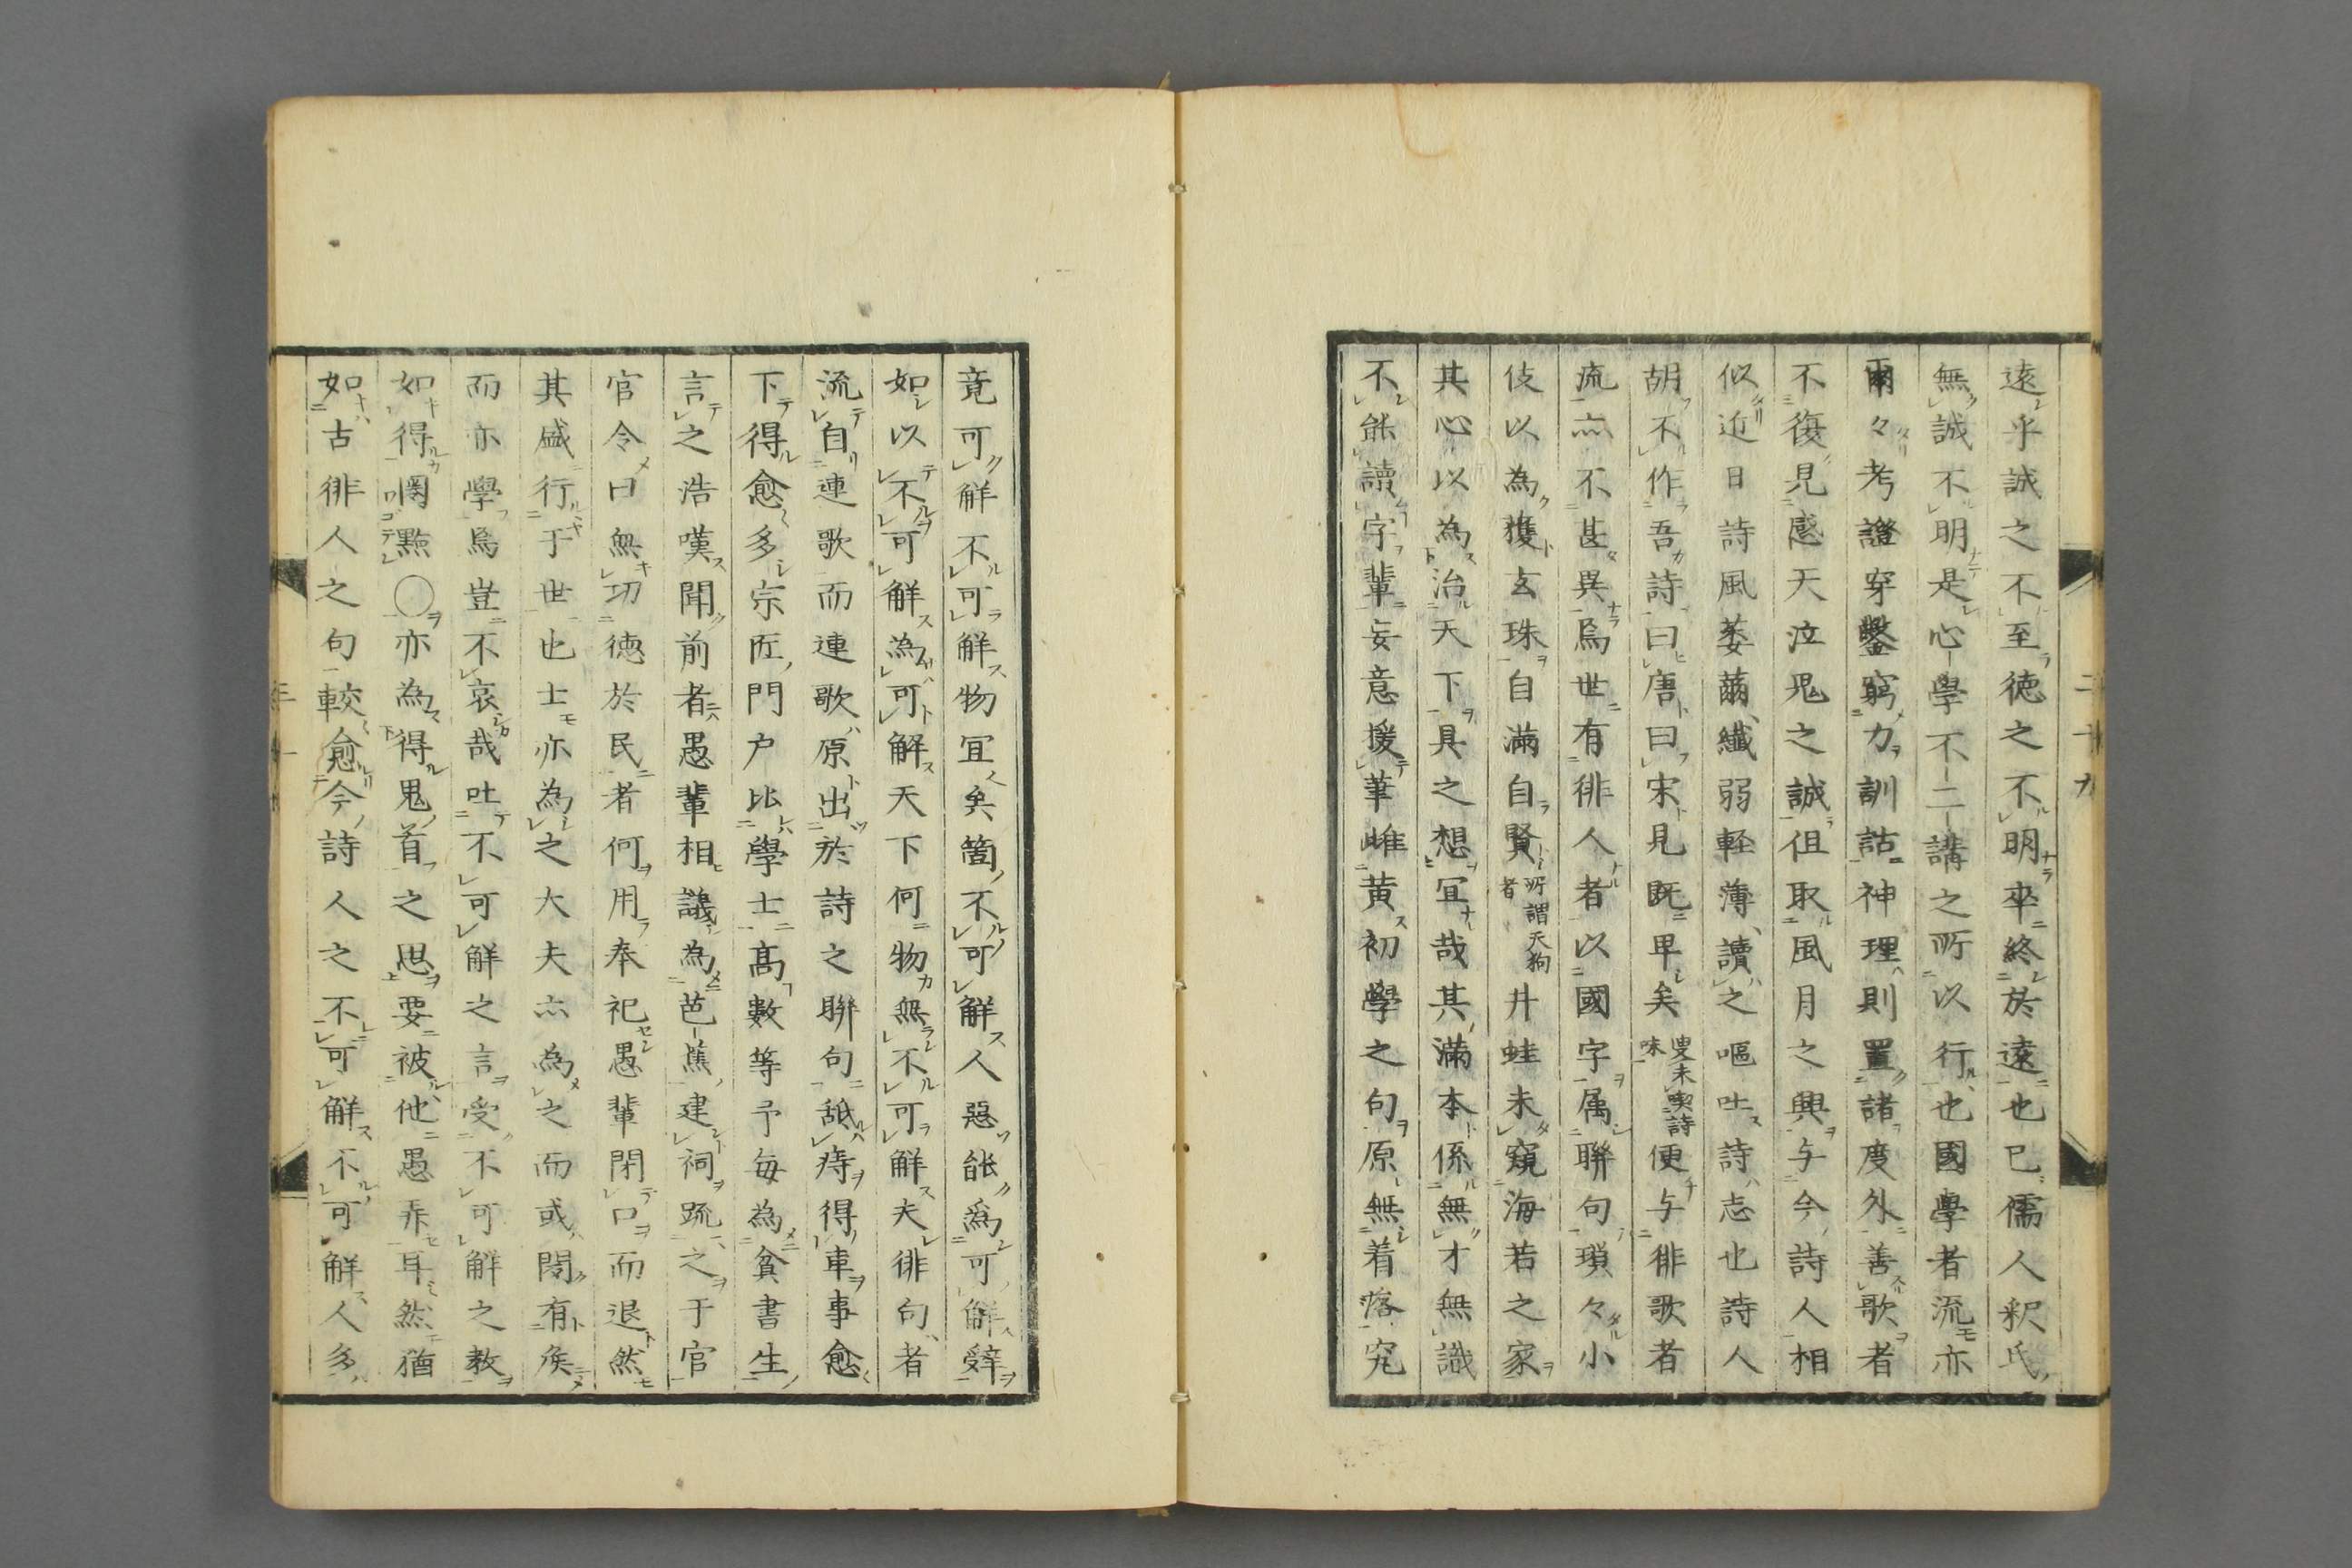 遠乎誠之不至徳之不明卒終於遠也已儒人釈氏
無誠不明是心學不二講之所以行也國學者流亦
爾々考證穿鑿窮力訓詁神理則置諸度外善歌者
不復見感天泣鬼之誠徂取風月之興与今詩人相
似近日詩風萎薾纎弱軽薄讀之嘔吐詩志也詩人
胡不作吾詩曰唐曰宋見既早矣叟未喫詩味便与徘歌者
流亦不甚異焉世有徘人者以國字属聯句瑣々小
伎以為獲玄珠自滿自賢所謂天狗者井蛙未窺海若之家
其心以為治天下具之想冝哉其滿本係無才無識
不能讀字輩妄意援筆雌黄初學之句原無着落究
竟可解不可解物冝矣箇不可解人惡能為可解辭
如以不可解為可解天下何物無不可解夫徘句者
流自連歌而連歌原出於詩之聯句舐痔得車事愈
下得愈多宗匠門户比學士髙數等予毎為貧書生
言之浩嘆聞前者愚輩相議為芭蕉建祠䟽之于官
官令曰無功徳於民者何用奉祀愚輩閉口而退然
其盛行于世也士亦為之大夫亦為之而或聞有矦
而亦學焉豈不哀哉吐不可解之言受不可解之教
如得圈點〇亦為得鬼首之思要被他愚弄耳然猶
如古徘人之句較愈今詩人之不可解不可解人多